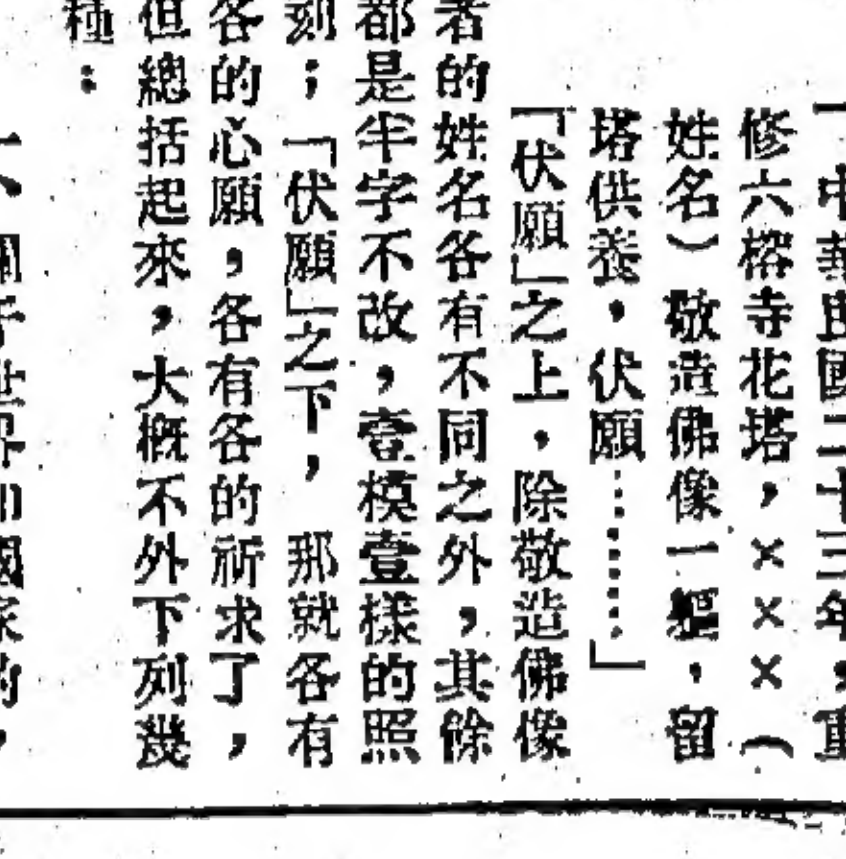 「中華民國二十三年，重
修六榕寺花塔，×××（
姓名）敬造佛像一軀，留
塔供養，伏願……」
「伏願」之上，除敬造佛像
者的姓名各有不同之外，其餘
都是半字不改，壹模壹樣的照
刻；「伏願」之下，那就各有
各的心願，各有各的祈求了，
但總括起來，大概不外下列幾
種：
一、關于世界和國家的，